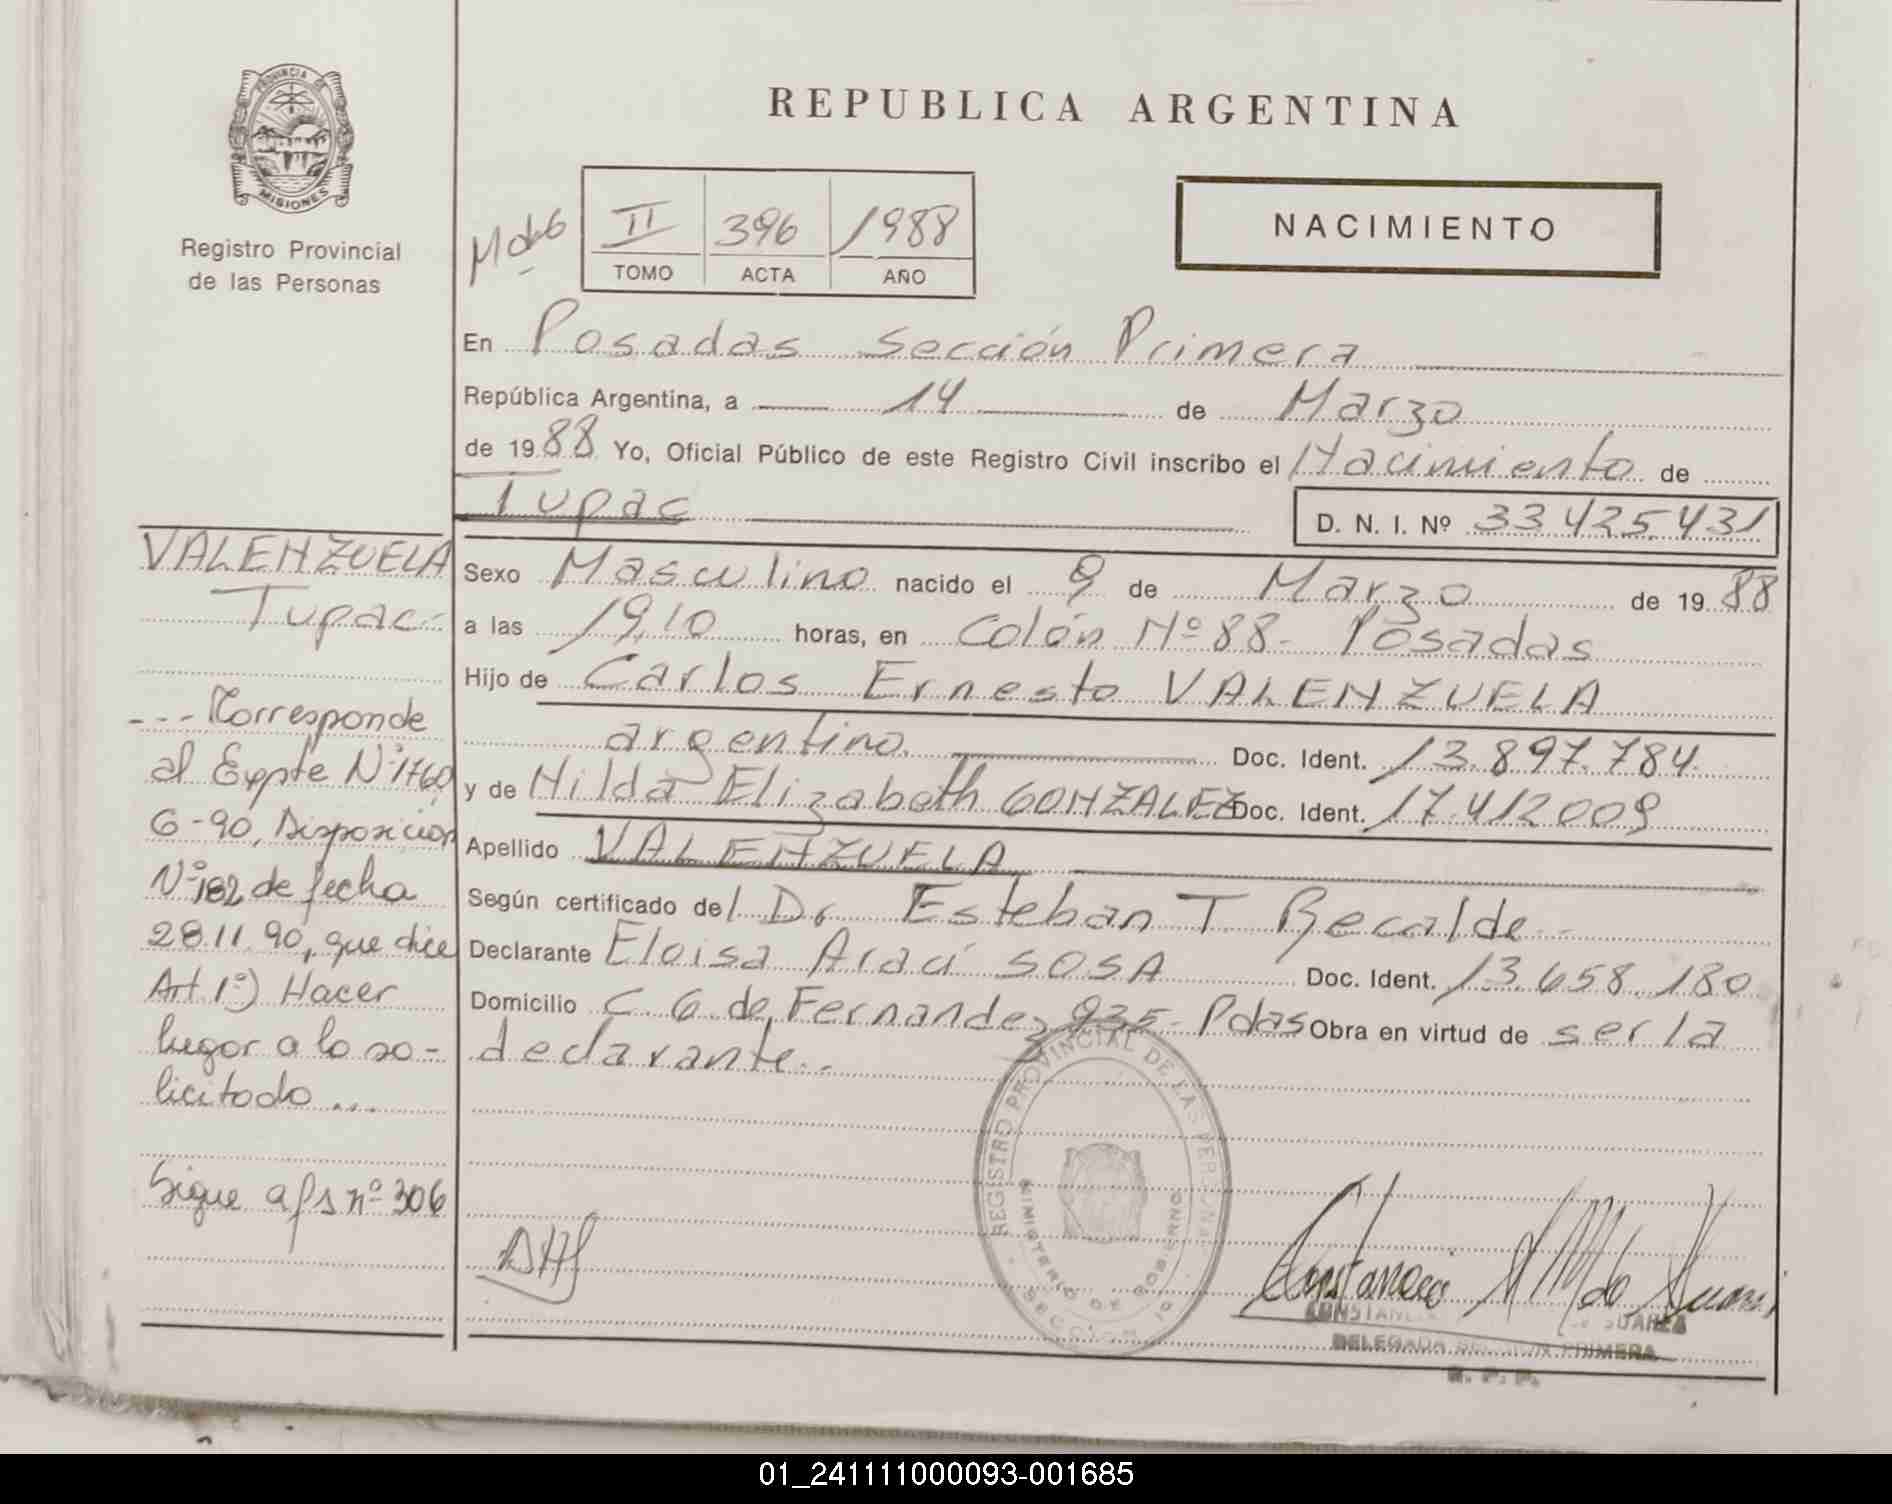 PROVINCIA DE
MISIONES
Registro Provincial
de las Personas
REPUBLICA ARGENTINA
II 396 1988
TOMO ACTA AÑO
NACIMIENTO
En Posadas Sección Primera
República Argentina, a 14 de Marzo
de 1988 Yo, Oficial Público de este Registro Civil inscribo el Nacimiento de
Tupac
D. N. I. Nº 33.425.431
Sexo Masculino nacido el 9 de Marzo de 1988
a las 19,10 horas, en Colón Nº 88- Posadas
Hijo de Carlos Ernesto VALENZUELA
argentino. Doc. Ident. 13.897.784.
y de Hilda Elizabeth GONZALEZ Doc. Ident. 17.412009
Apellido VALENZUELA
Según certificado del Dr Esteban T Recalde--
Declarante Eloisa Araci SOSA Doc. Ident. 13.658.180
Domicilio C. G. de Fernandez 935- Pdas Obra en virtud de ser la
declarante--
VALENZUELA
Tupac-
--- Corresponde
al Expte Nº 1760
G-90, Disposición
Nº 182 de fecha
28.11.90, que dice
Art. 1º) Hacer
lugar a lo so-
licitado...
Sigue a fs nº 306
REGISTRO PROVINCIAL DE LAS PERSONAS
MINISTERIO DE GOBIERNO
DELEGADA SECCION PRIMERA
R. P. P.
01_241111000093-001685